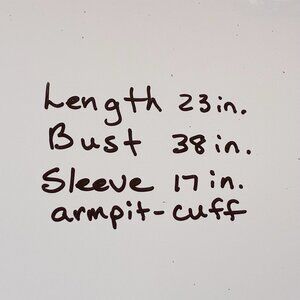 Length 23 in.
Bust 38 in.
Sleeve 17 in.
armpit-cuff